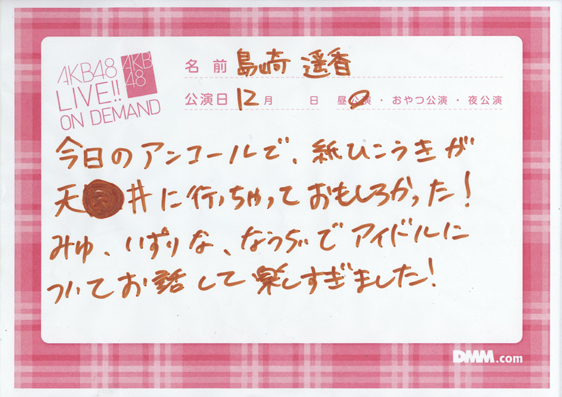 AKB48
LIVE!!
ON DEMAND
AKB
48
名前 島崎 遥香
公演日 12月 日 昼公演・おやつ公演・夜公演
今日のアンコールで、紙ひこうきが
天井に行っちゃっておもしろかった!
みゆ、いずりな、なつぃでアイドルに
ついてお話して楽しすぎました!
DMM.com